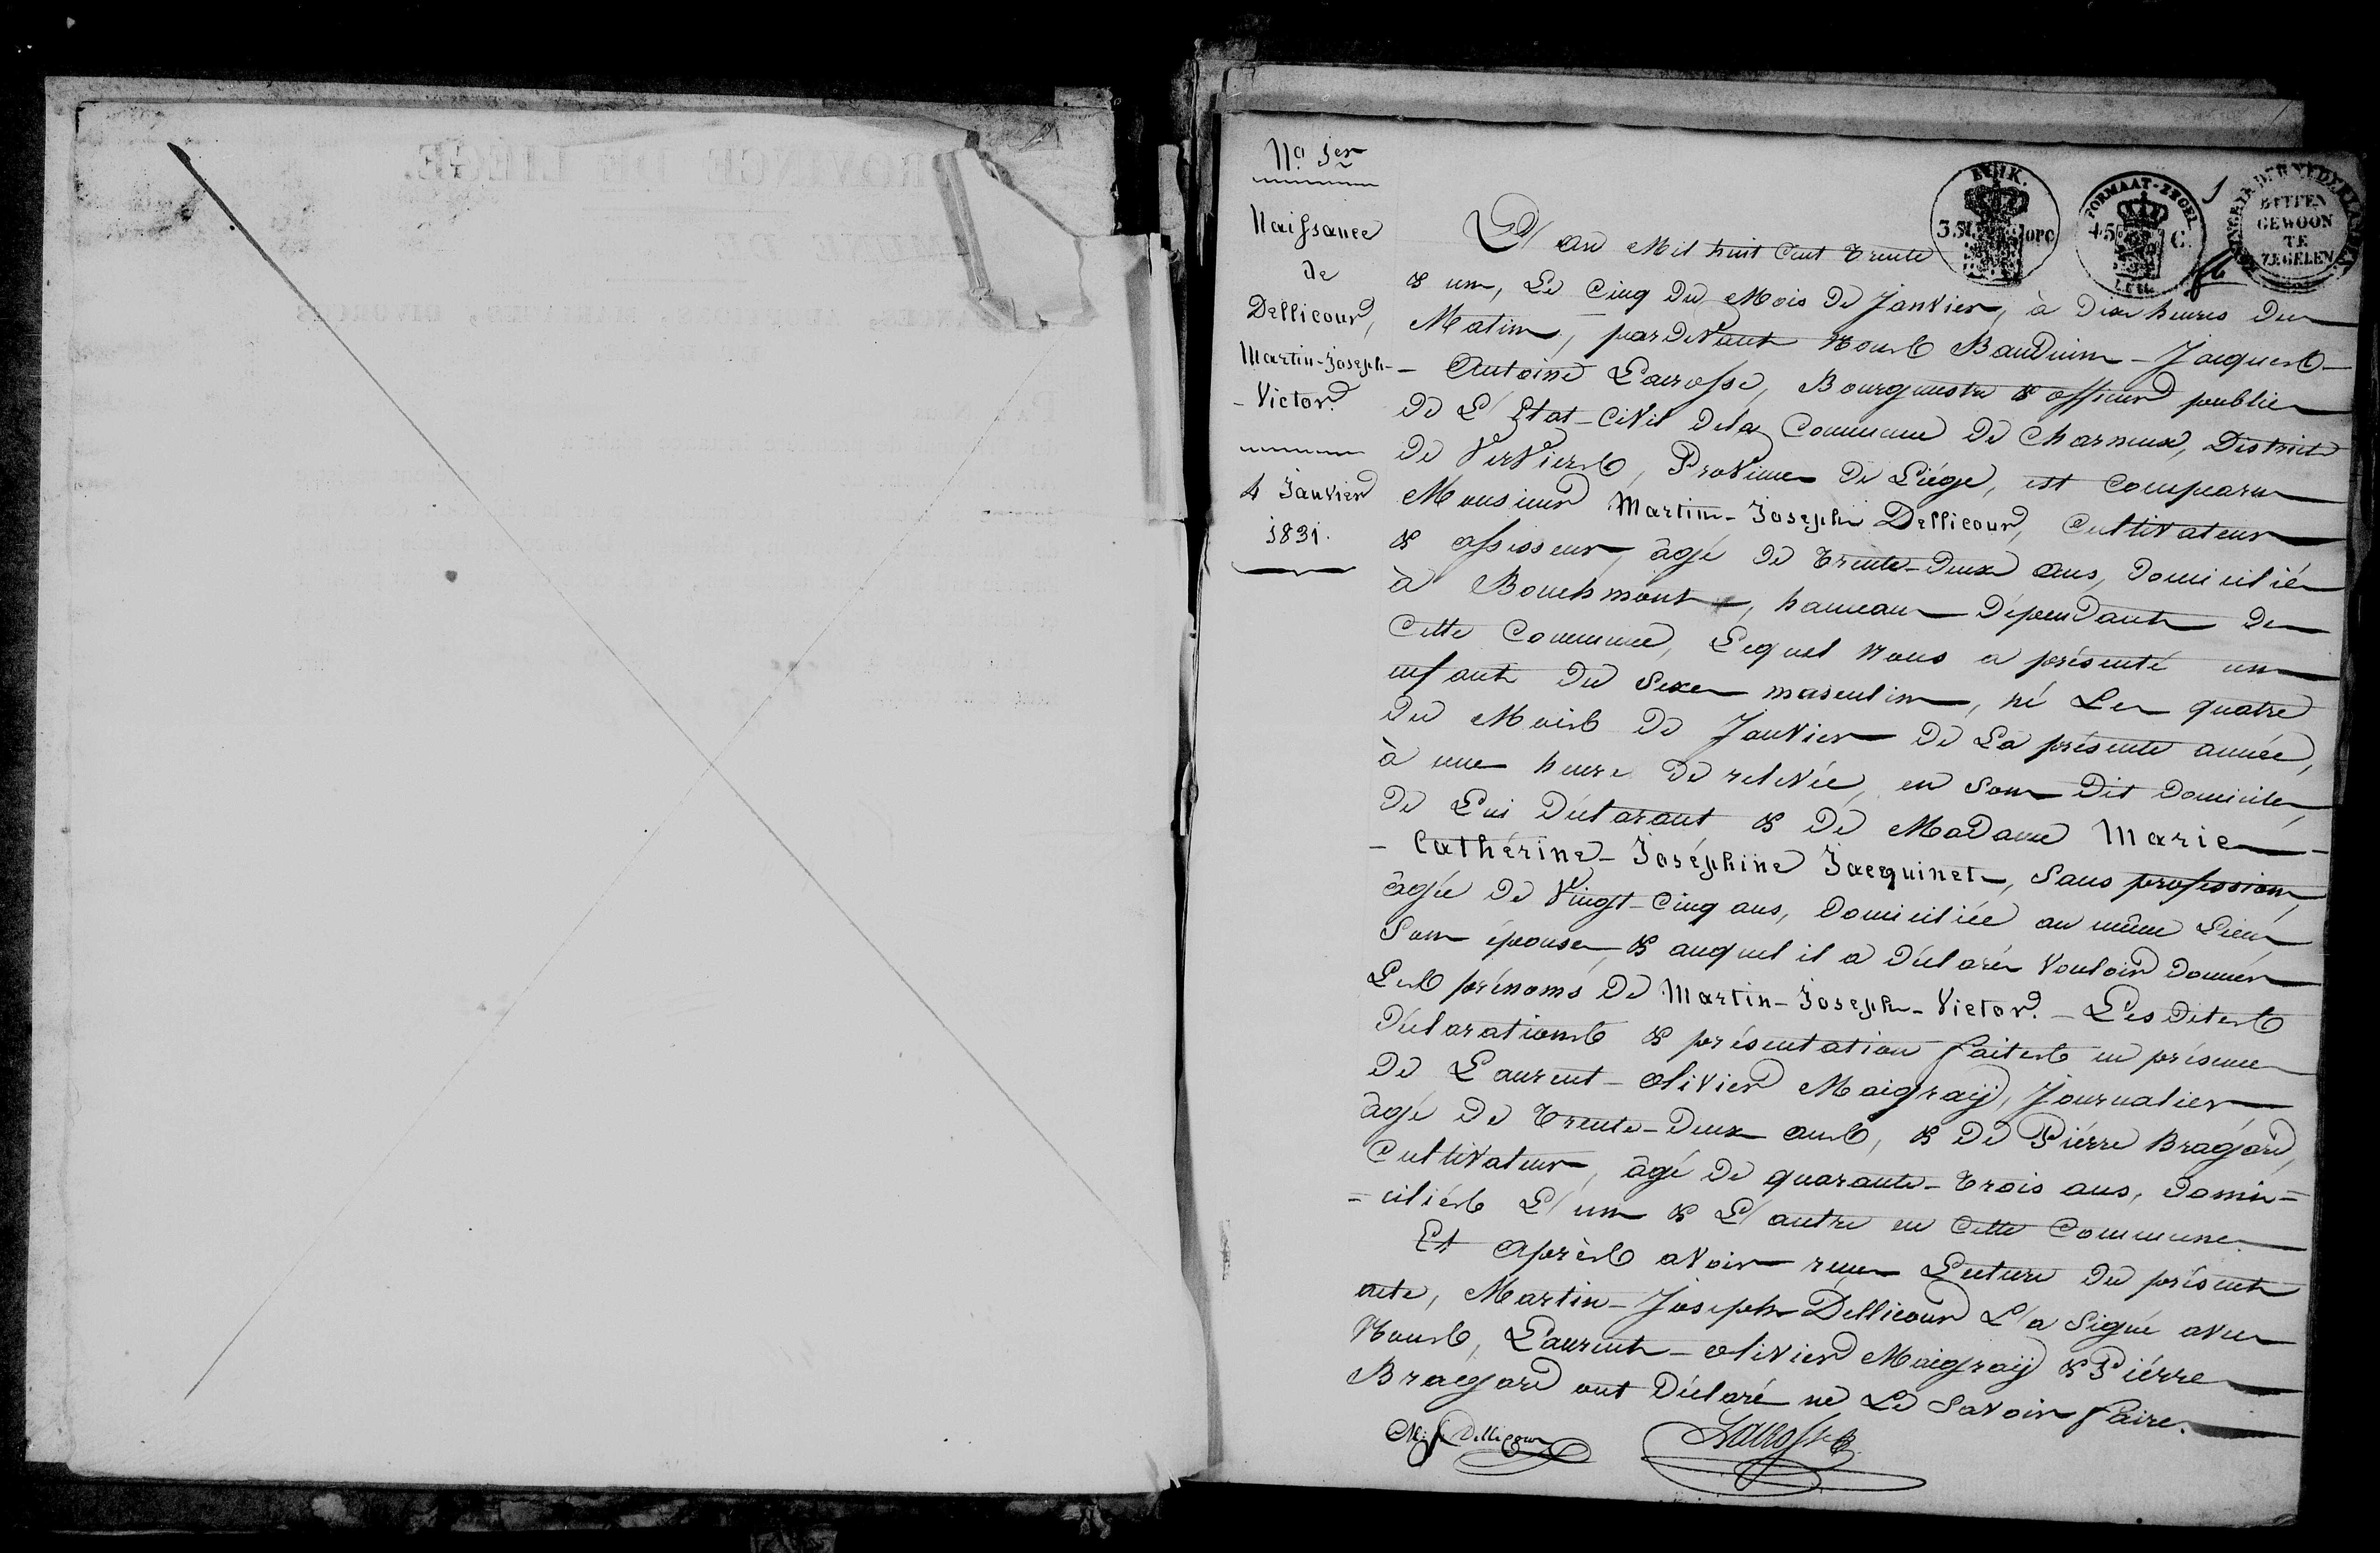 PROVINCE DE LIÉGE.
N.º 1er
Naissance
de
Dellicour,
Martin-Joseph-
- Victor.
4 Janvier
1831.
FORMAAT-ZEGEL
45 C.
BUITEN
GEWOON
TE
ZEGELEN
1
L'an Mil huit Cent Trente
& un, Le Cinq du Mois de Janvier, à Dix heures du
Matin, pardevant Nous Bauduin - Jacques -
- Antoine Lacrosse, Bourgmestre & officier public
de L'Etat-Civil dela Commune de Charneux, District
de Verviers, Province de Liége, est comparu
Monsieur Martin-Joseph Dellicour, Cultivateur
& assesseur, âgé de Trente-Deux ans, domicilié
à Bouchmont, hameau Dépendant de
Cette Commune, Lequel nous a présenté un
enfant du Sexe masculin, né Le quatre
du Mois de Janvier de La présente année,
à une heure de relevée, en Son Dit Domicile,
de Lui Déclarant & de Madame Marie -
- Cathérine - Joséphine Jacquinet, Sans profession,
âgée de Vingt-Cinq ans, Domiciliée au même Lieu,
Son épouse, & auquel il a déclaré Vouloir Donner
Les prénoms de Martin-Joseph-Victor. - Les Dites
Déclarations & présentation faites en présence
de Laurent - Olivier Maigraij, Journalier
âgé de Trente-Deux ans, & de Piérre Bragard,
Cultivateur, âgé de quarante-Trois ans, domi=
= ciliés L'un & L'autre en Cette Commune.
Et Après avoir reçu Lecture du présent
acte, Martin-Joseph Dellicour L'a Signé avec
Nous, Laurent - Olivier Maigraij & Piérre
Bragard ont Déclaré ne Le Savoir faire.
M: J Dellicour Lacrosse